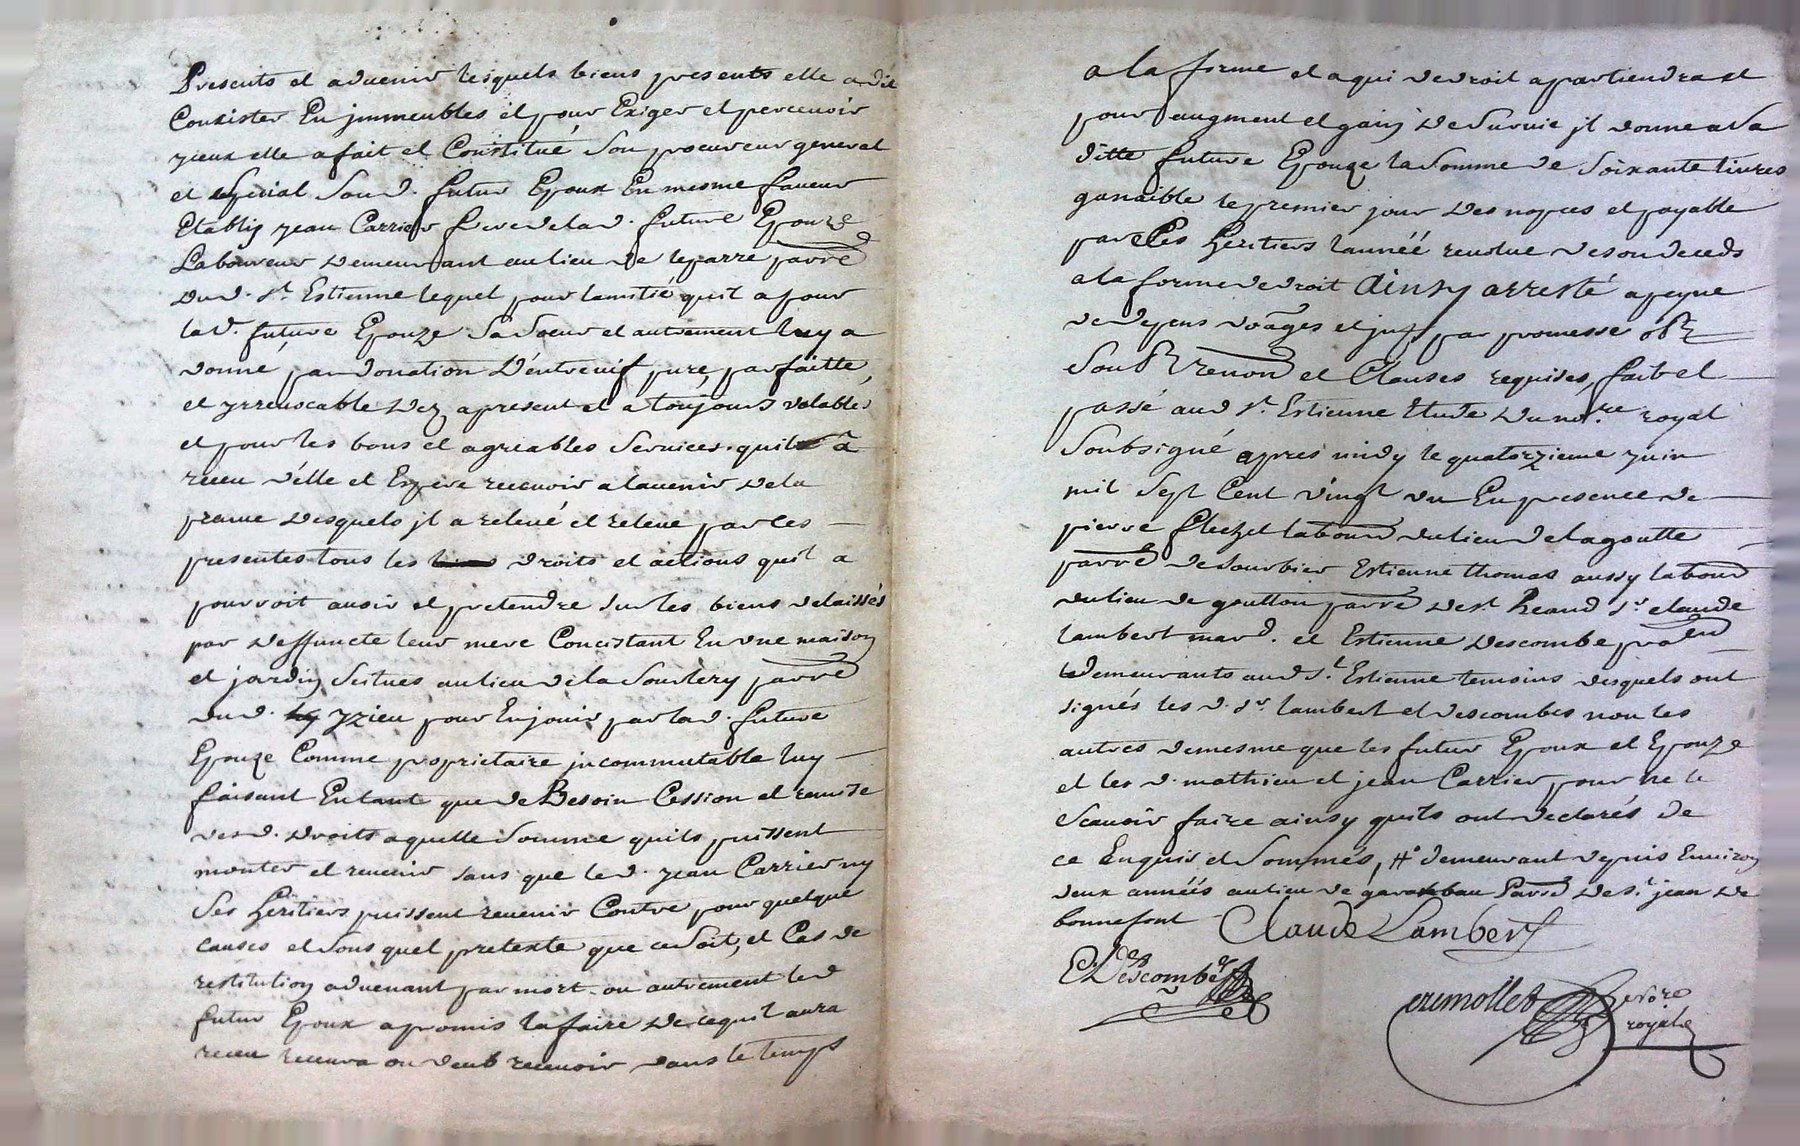 Presents et advenir lesquels biens presents elle a dit
Consister En jmmeubles et pour Exiger et percevoir
yceux elle a fait et Constitué Son procureur general
et special Sond. futur Epoux En mesme faveur
Etably jean Carrier frere de lad. future Epouze
Laboureur demeurant au lieu de leparre parre
dud. St. Estienne lequel pour lamitié quil a pour
lad. future Epouze Sa Soeur et autrement luy a
donné par donation D'entrevif pure, parfaitte,
et yrrevocable Dez apresent et a toujours valable,
et pour les bons et agreables Services quil a
receu d'elle et Espere recevoir a ladvenir de la
preuve desquels jl a relevé et releve par les
presentes tous les droits et actions quil a
pourroit avoir et pretendre Sur les biens delaissés
par deffuncte leur mere Concistant En une maison
et jardin Scitués au lieu de la Sourtery parre
dud. yzieu pour En jouir par lad. future
Epouze Comme proprietaire jncommutable luy
faisant En tant que de Besoin Cession et remise
desd. droits a quelle Somme quils puissent
monter et revenir sans que led. jean Carrier ny
Ses Heritiers puissent revenir Contre pour quelque
causes et Sous quel pretexte que ce Soit, et Cas de
restitution advenant par mort ou autrement led
futur Epoux a promis la faire de ce quil aura
receu recevra ou deub recevoir dans le temps
a la forme et a qui de droit apartiendra et
pour augment et gain de Survie jl donne a Sa
ditte future Epouze la Somme de Soixante livres
gaignable le premier jour des nopces et payable
par Ses Heritiers l'année revolue de son deceds
a la forme de droit ainsy arresté a peyne
de depens domages et par promesse obl
Soub renon et Clauses requises, fait et
passé aud St. Estienne Etude du nore. royal
Soubsigné apres midy le quatorzieme juin
mil Sept Cent vingt un En presence de
pierre flechet labour du lieu de lagoutte
parre de Sourbier Estienne thomas aussy labour
du lieu de goutton parre de St. Heand Sr. claude
lambert mard. et Estienne descombe
demeurants aud St. Estienne temoins desquels ont
signés les d. Sr. lambert et descombes non les
autres de mesme que les futur Epoux et Epouze
et les d. mathieu et jean Carrier pour ne le
Scavoir faire ainsy quils ont declarés de
ce Enquis et Sommés, # demeurant depuis Environ
deux années au lieu de parre de St. jean de
bonnefont Claude Lambert
E. Descombe
crimollet nore
royal